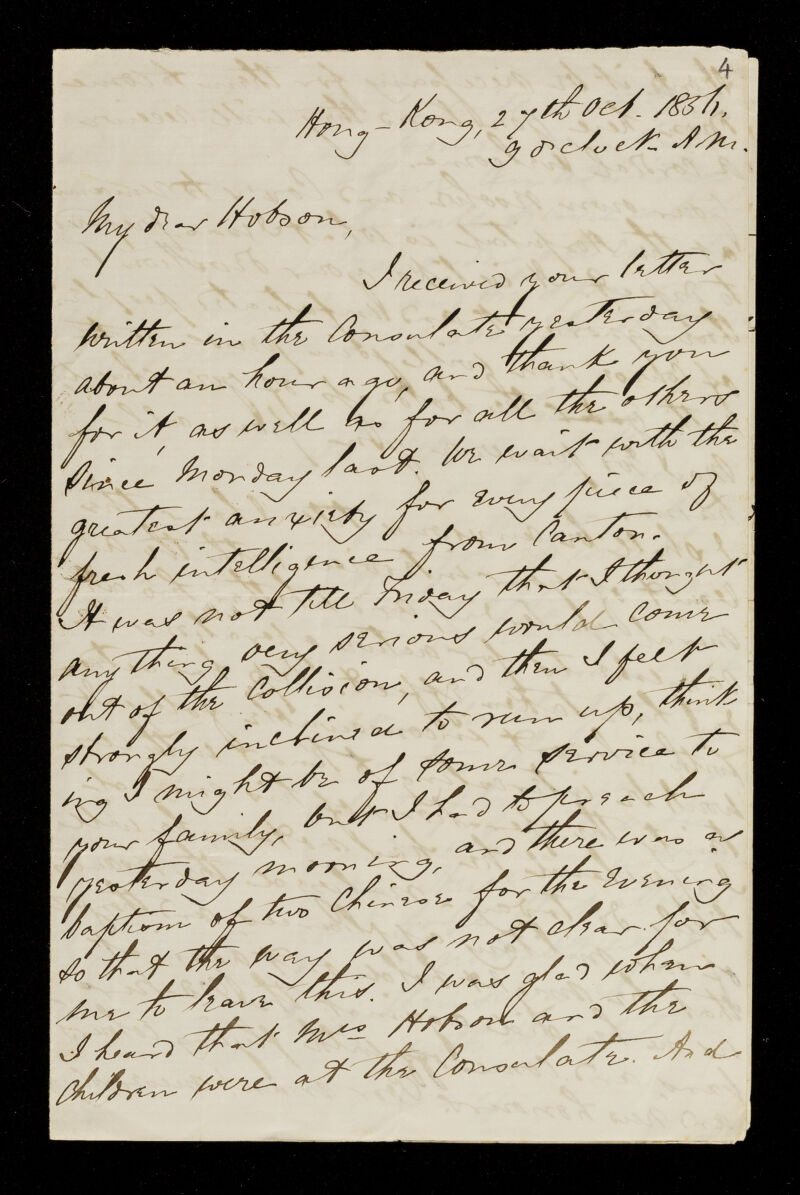 4
Hong-Kong, 27th Oct. 1856.
9 o'clock A.M.
My dear Hobson,
I received your letter
written in the Consulate yesterday
about an hour ago, and thank you
for it, as well as for all the others
since Monday last. We wait with the
greatest anxiety for every piece of
fresh intelligence from Canton.
It was not till Friday that I thought
any thing very serious would come
out of the Collision, and then I felt
strongly inclined to run up, think
ing I might be of some service to
your family, but I had to preach
yesterday morning, and there was a
baptism of two Chinese for the Evening
so that the way was not clear for
me to leave this. I was glad when
I heard that Mrs Hobson and the
children were at the Consulate. And